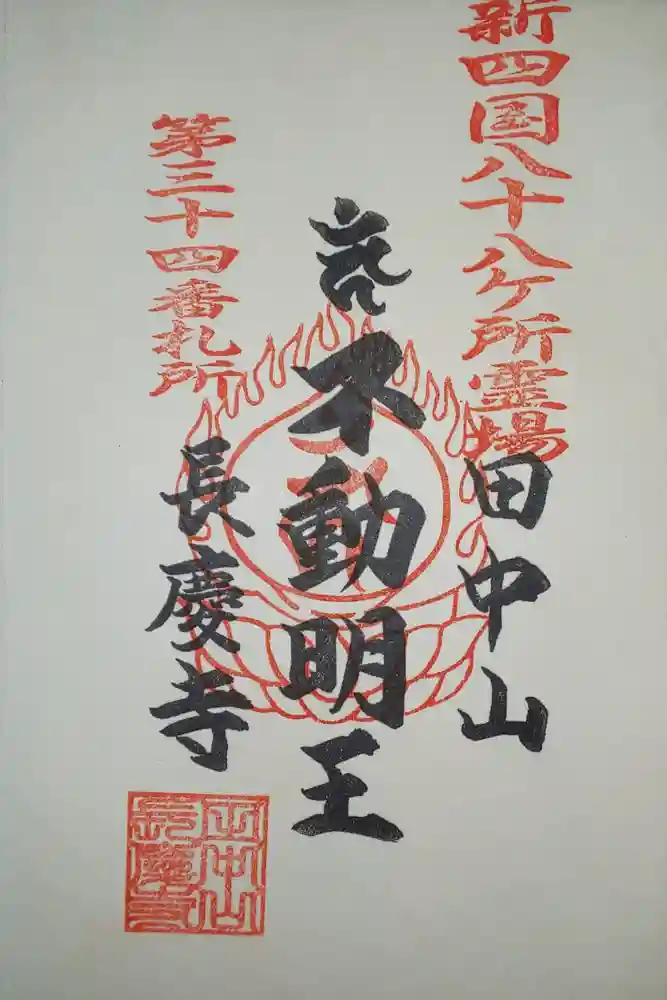 新四国八十八ケ所霊場
田中山
不動明王
第三十四番札所
長慶寺
田中山
長慶寺